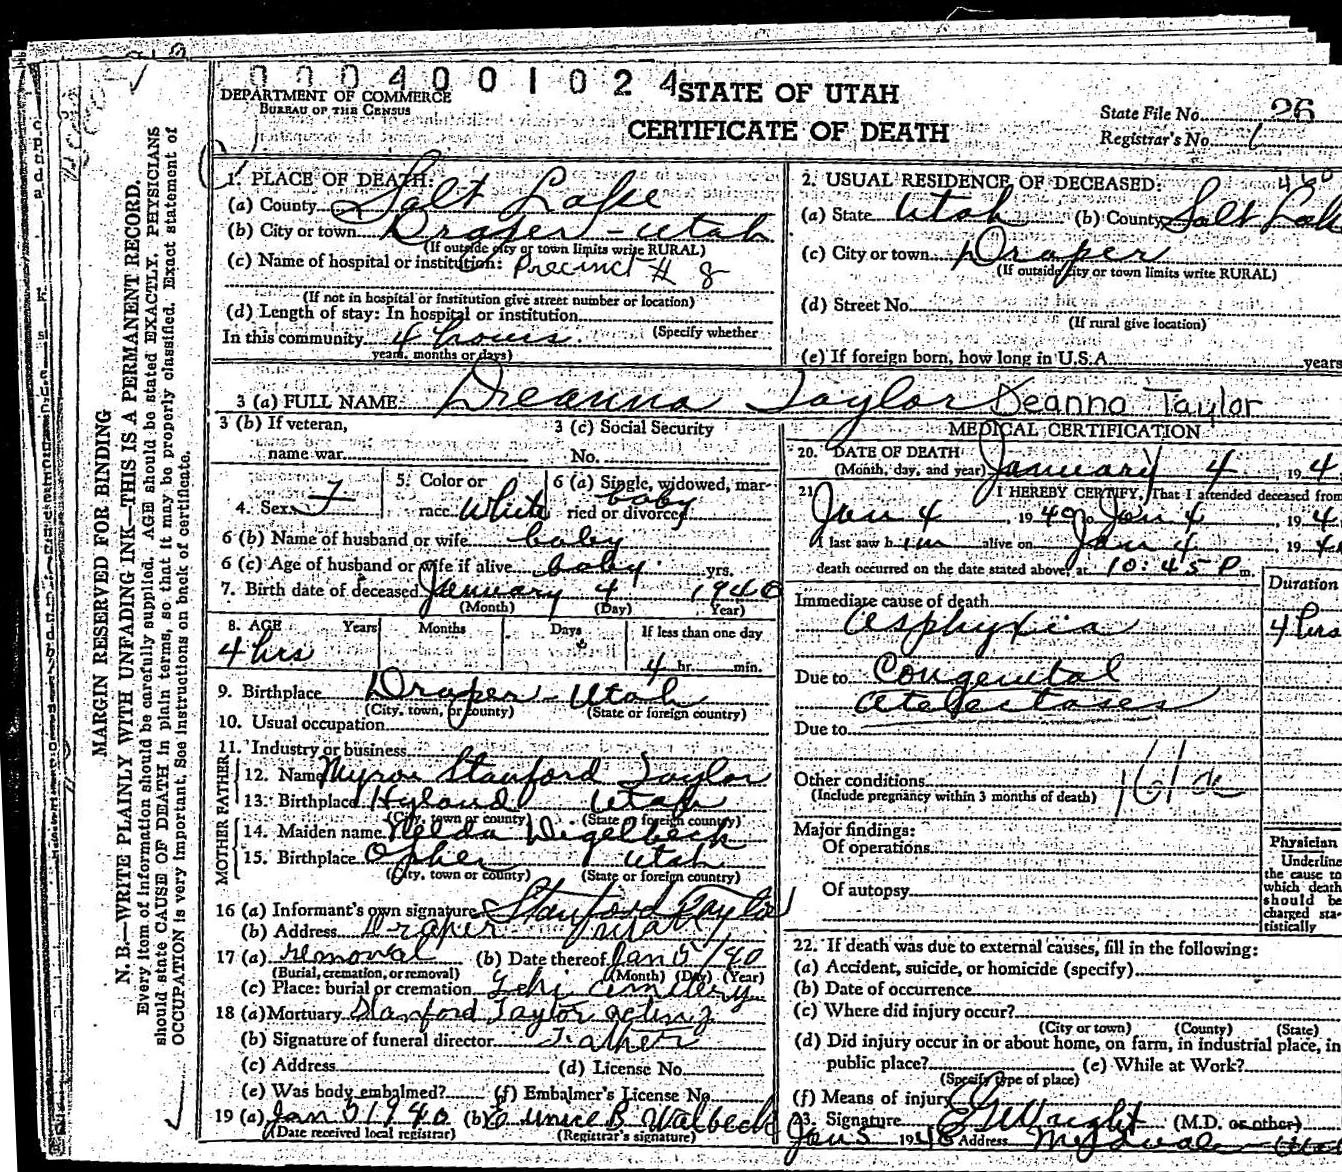 0004001024
DEPARTMENT OF COMMERCE
BUREAU OF THE CENSUS
STATE OF UTAH
CERTIFICATE OF DEATH
State File No. 26
Registrar's No. 1
MARGIN RESERVED FOR BINDING
N. B.—WRITE PLAINLY WITH UNFADING INK—THIS IS A PERMANENT RECORD.
Every item of information should be carefully supplied. AGE should be stated EXACTLY. PHYSICIANS
should state CAUSE OF DEATH in plain terms, so that it may be properly classified. Exact statement of
OCCUPATION is very important. See instructions on back of certificate.
1. PLACE OF DEATH:
(a) County Salt Lake
(b) City or town Draper - Utah
(If outside city or town limits write RURAL)
(c) Name of hospital or institution: Precinct # 8
(If not in hospital or institution give street number or location)
(d) Length of stay: In hospital or institution
(Specify whether
In this community 4 hours
years, months or days)
2. USUAL RESIDENCE OF DECEASED:
(a) State Utah (b) County Salt Lak
(c) City or town Draper
(If outside city or town limits write RURAL)
(d) Street No.
(If rural give location)
(e) If foreign born, how long in U.S.A. years
3 (a) FULL NAME Deanna Taylor Deanna Taylor
3 (b) If veteran,
name war
3 (c) Social Security
No.
4. Sex F
5. Color or
race White
6 (a) Single, widowed, mar-
ried or divorced baby
6 (b) Name of husband or wife baby
6 (c) Age of husband or wife if alive baby yrs.
7. Birth date of deceased January 4 1940
(Month) (Day) Year)
8. AGE Years Months Days If less than one day
4 hrs 4 hr. min.
9. Birthplace Draper - Utah
(City, town, or county) (State or foreign country)
10. Usual occupation
11. Industry or business
FATHER
12. Name Myron Stanford Taylor
13. Birthplace Hyland Utah
(City, town or county) (State or foreign country)
MOTHER
14. Maiden name Nelda Wigelbeck
15. Birthplace Opher Utah
(City, town or county) (State or foreign country)
16 (a) Informant's own signature Stanford Taylor
(b) Address Draper Utah
17 (a) removal (b) Date thereof Jan 5 / 40
(Burial, cremation, or removal) (Month) (Day) (Year)
(c) Place: burial or cremation Lehi Cemetery
18 (a) Mortuary Stanford Taylor acting
(b) Signature of funeral director Father
(c) Address (d) License No.
(e) Was body embalmed? (f) Embalmer's License No.
19 (a) Jan 5 1940 (b) Eunice B. Walbeck
(Date received local registrar) (Registrar's signature)
MEDICAL CERTIFICATION
20. DATE OF DEATH
(Month, day, and year) January 4, 194
21. I HEREBY CERTIFY, That I attended deceased from
Jan 4, 1940 to Jan 4, 194
I last saw him alive on Jan 4, 194
death occurred on the date stated above, at 10:45 P m.
Duration
Immediate cause of death
Asphyxia 4 hrs
Due to Congenital
Atelectases
Due to
Other conditions
(Include pregnancy within 3 months of death)
161a
Major findings:
Of operations
Of autopsy
Physician
Underline
the cause to
which death
should be
charged sta-
tistically
22. If death was due to external causes, fill in the following:
(a) Accident, suicide, or homicide (specify)
(b) Date of occurrence
(c) Where did injury occur?
(City or town) (County) (State)
(d) Did injury occur in or about home, on farm, in industrial place, in
public place? (e) While at Work?
(Specify type of place)
(f) Means of injury
23. Signature EGWright (M.D. or other)
Jan 5 1940 Address Midvale